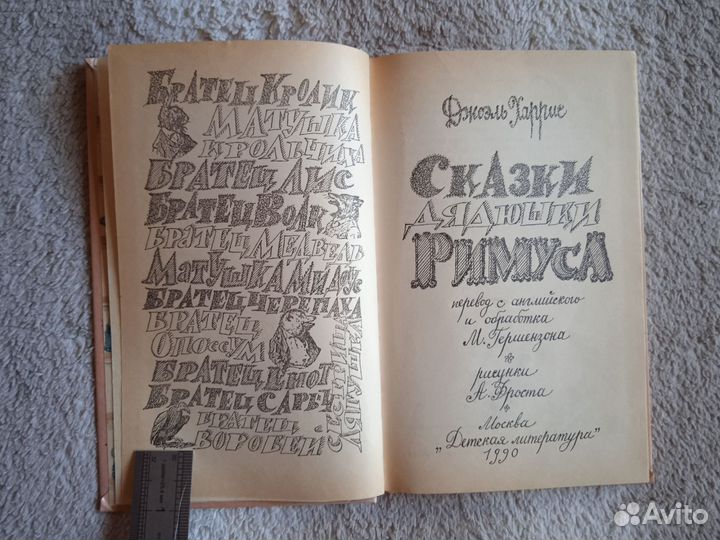 Братец Кролик
Матушка
Крольчиха
Братец Лис
Братец Волк
Братец Медведь
Матушка Мидоус
Братец Черепаха
Братец
Опоссум
Братец Енот
Братец Сарыч
Братец
Воробей
Сестрица
Лягушка
Джоэль Харрис
Сказки
дядюшки
Римуса
перевод с английского
и обработка
М. Гершензона
рисунки
А. Фроста
Москва
„Детская литература"
1990
Avito